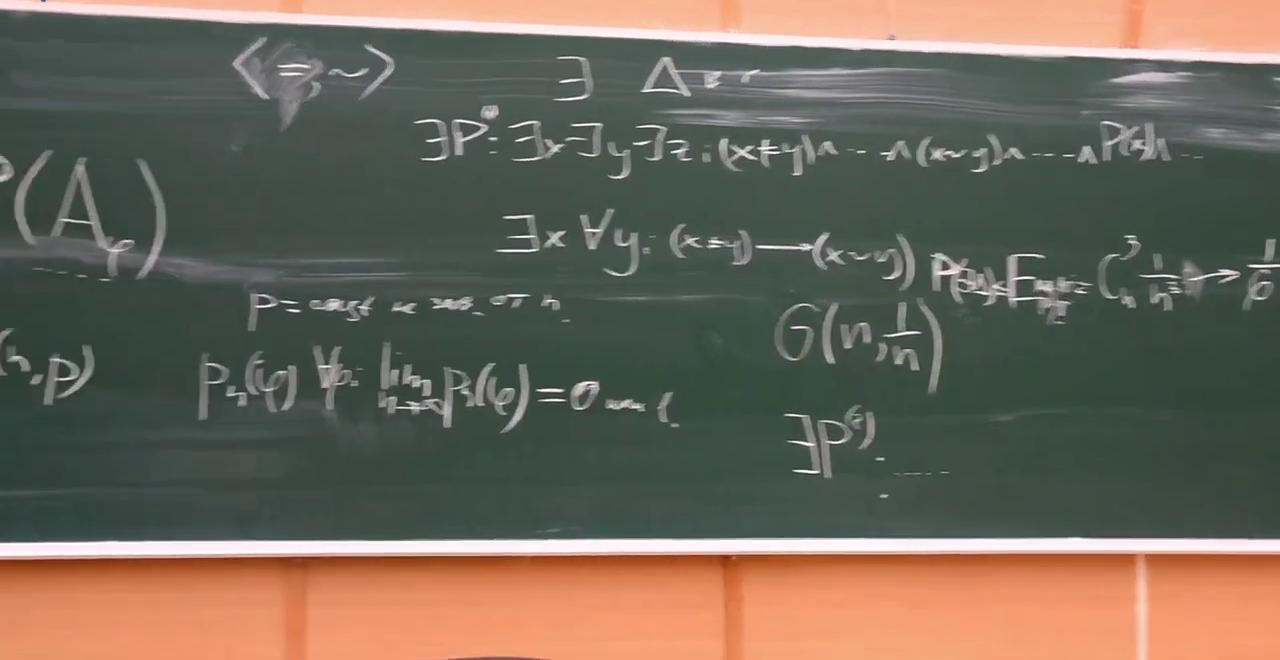 ⟨=, ~⟩
∃ Δ
∃P: ∃x ∃y ∃z: (x≠y)∧ ... ∧(x~y)∧ ... ∧P(x)∧ ...
P(A_φ)
∃x ∀y: (x≠y)→(x~y)
C_n^3 1/n^3 → 1/6
p = const не зав. от n
G(n, 1/n)
(n, p)
p_n(φ) ∀φ: lim_{n→∞} p_n(φ) = 0 или 1.
∃P